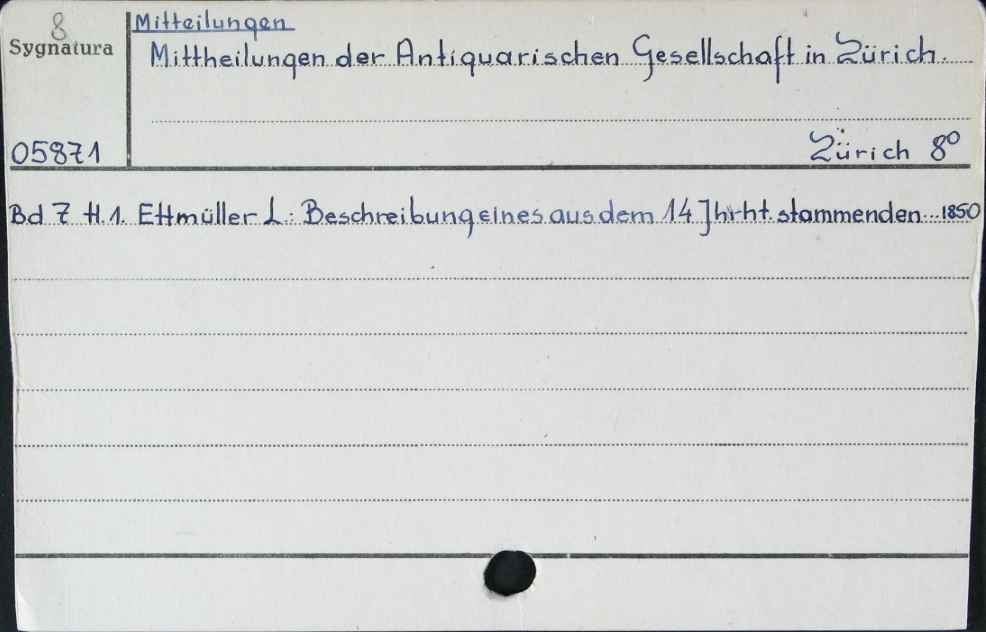 8
Sygnatura
05871
Mitteilungen
Mittheilungen der Antiquarischen Gesellschaft in Zürich.
Zürich 8°
Bd 7 H.1. Ettmüller L.: Beschreibung eines aus dem 14 Jhrht. stammenden... 1850